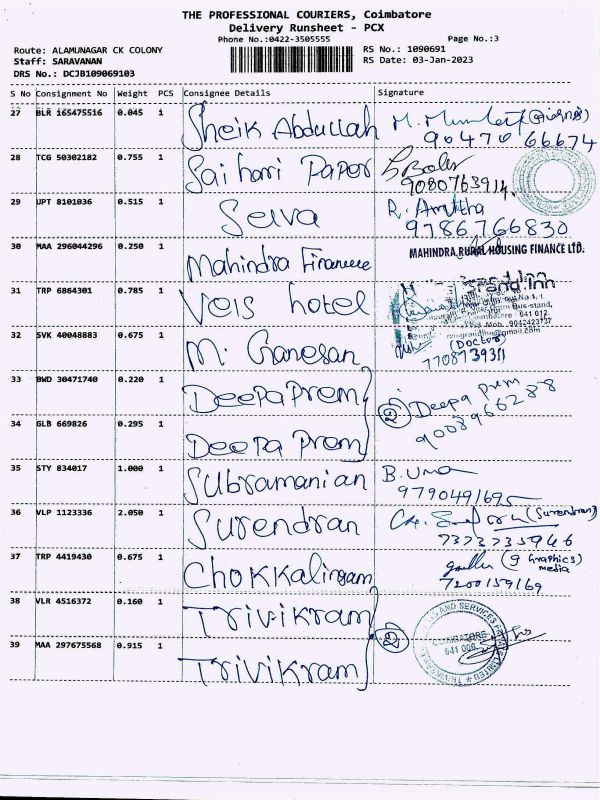 THE PROFESSIONAL COURIERS, Coimbatore
Delivery Runsheet - PCX
Phone No.:0422-3505555
Page No.:3
Route: ALAMUNAGAR CK COLONY
RS No.: 1090691
Staff: SARAVANAN
RS Date: 03-Jan-2023
DRS No.: DCJB109069103
S No Consignment No Weight PCS Consignee Details Signature
27 BLR 165475516 0.045 1 Sheik Abdullah
90470 66674
28 TCG 50302182 0.755 1 Sai hari Paper
9080763914
29 UPT 8101036 0.515 1 Selva R. Amritha
9786766830
30 MAA 296044296 0.250 1 Mahindra Finance MAHINDRA RURAL HOUSING FINANCE LTD.
31 TRP 6864301 0.785 1 Veis hotel
Grand.Inn
Coimbatore - 641 012.
Mob. 9042423737
32 SVK 40048883 0.675 1 M. Ganesan (Doctor)
7708739311
33 BWD 30471740 0.220 1 Deepa Prem 2 Deepa Prem
9008966288
34 GLB 669826 0.295 1 Deepa Prem
35 STY 834017 1.000 1 Subramanian B. Uma
9790491695
36 VLP 1123336 2.050 1 Surendran (Surendran)
7373735966
37 TRP 4419430 0.675 1 Chokkalingam (9 Graphics)
media
7200159169
38 VLR 4516372 0.160 1 Trivikram
39 MAA 297675568 0.915 1 Trivikram 2
COIMBATORE
641 006